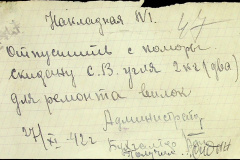 Накладная №1.
47
Отпустить с коморы
Скидану С.В. угля 2 кг (два)
для ремонта вилок
Администратор
27/XI-42г
Бухгалтер
Получил